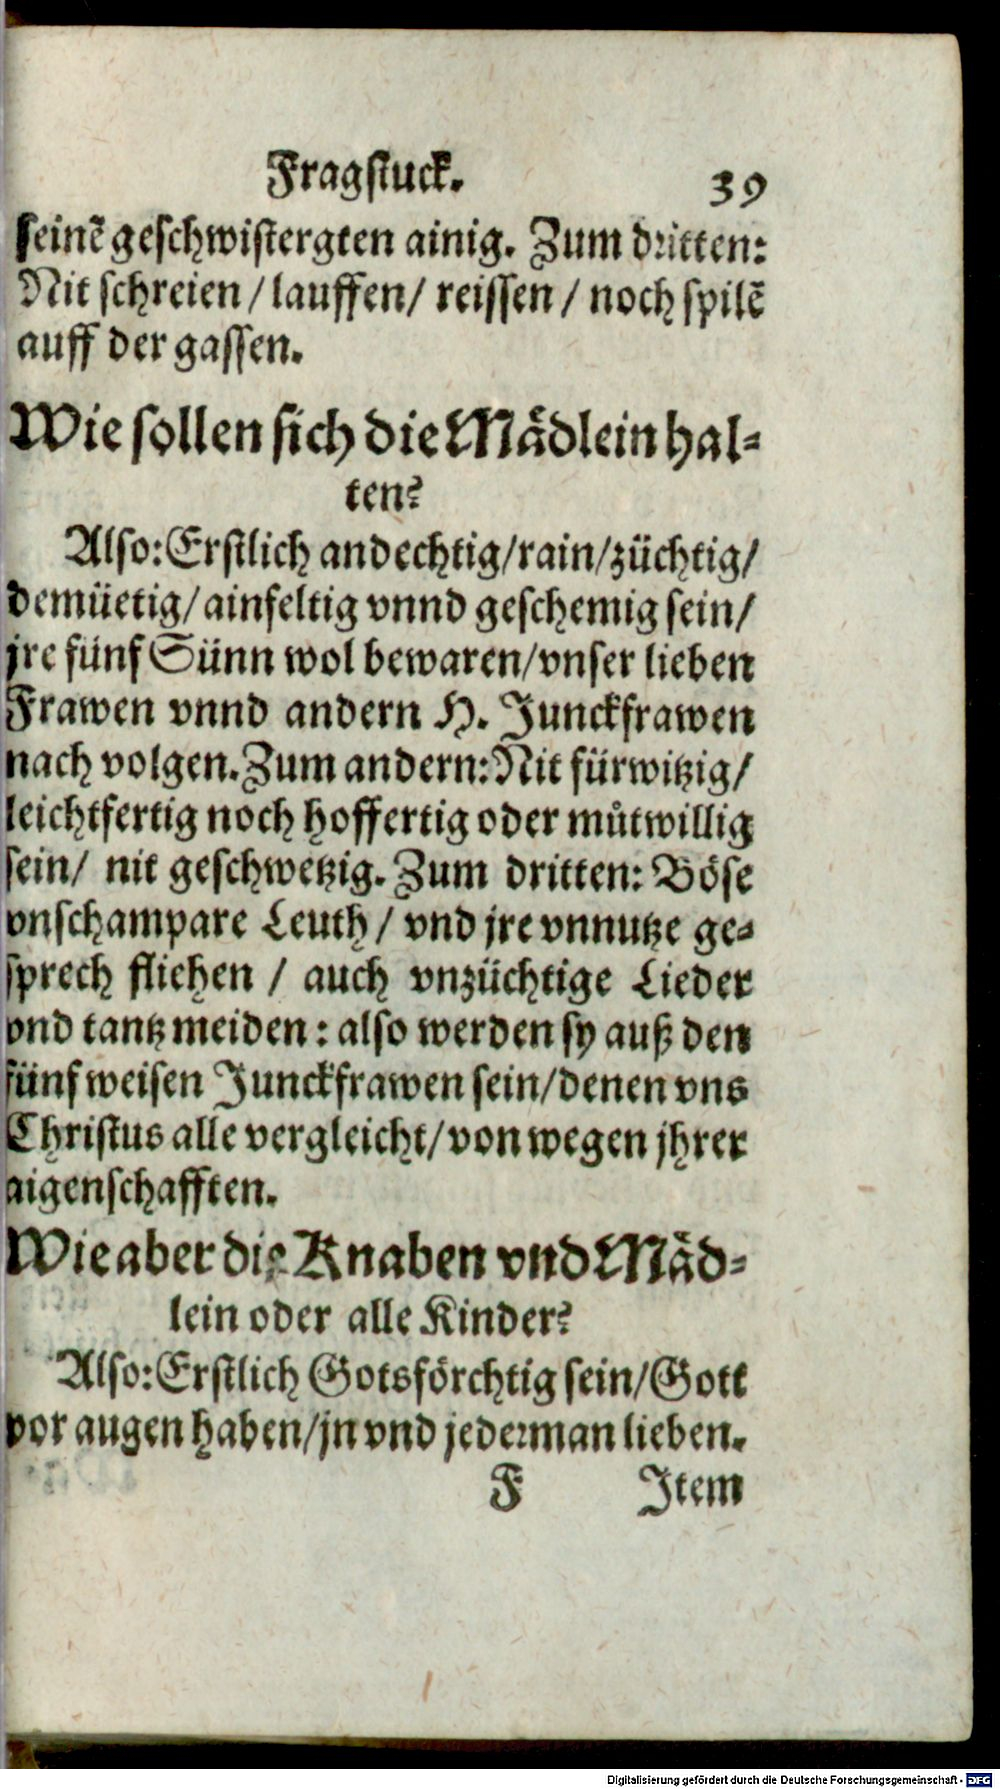 Fragstuck. 39
seinē geschwistergten ainig. Zum dritten:
Nit schreien / lauffen / reissen / noch spilē
auff der gassen.
Wie sollen sich die Mädlein hal-
ten?
Also: Erstlich andechtig / rain / züchtig /
demüetig / ainfeltig vnnd geschemig sein /
jre fünf Sünn wol bewaren / vnser lieben
Frawen vnnd andern H. Junckfrawen
nach volgen. Zum andern: Nit fürwitzig /
leichtfertig noch hoffertig oder můtwillig
sein / nit geschwetzig. Zum dritten: Böse
vnschampare Leuth / vnd jre vnnutze ge-
sprech fliehen / auch vnzüchtige Lieder
vnd tantz meiden : also werden sy auß den
fünf weisen Junckfrawen sein / denen vns
Christus alle vergleicht / von wegen jhrer
aigenschafften.
Wie aber die Knaben vnd Mäd-
lein oder alle Kinder?
Also: Erstlich Gotsförchtig sein / Gott
vor augen haben / jn vnd jederman lieben.
F Item
Digitalisierung gefördert durch die Deutsche Forschungsgemeinschaft - DFG